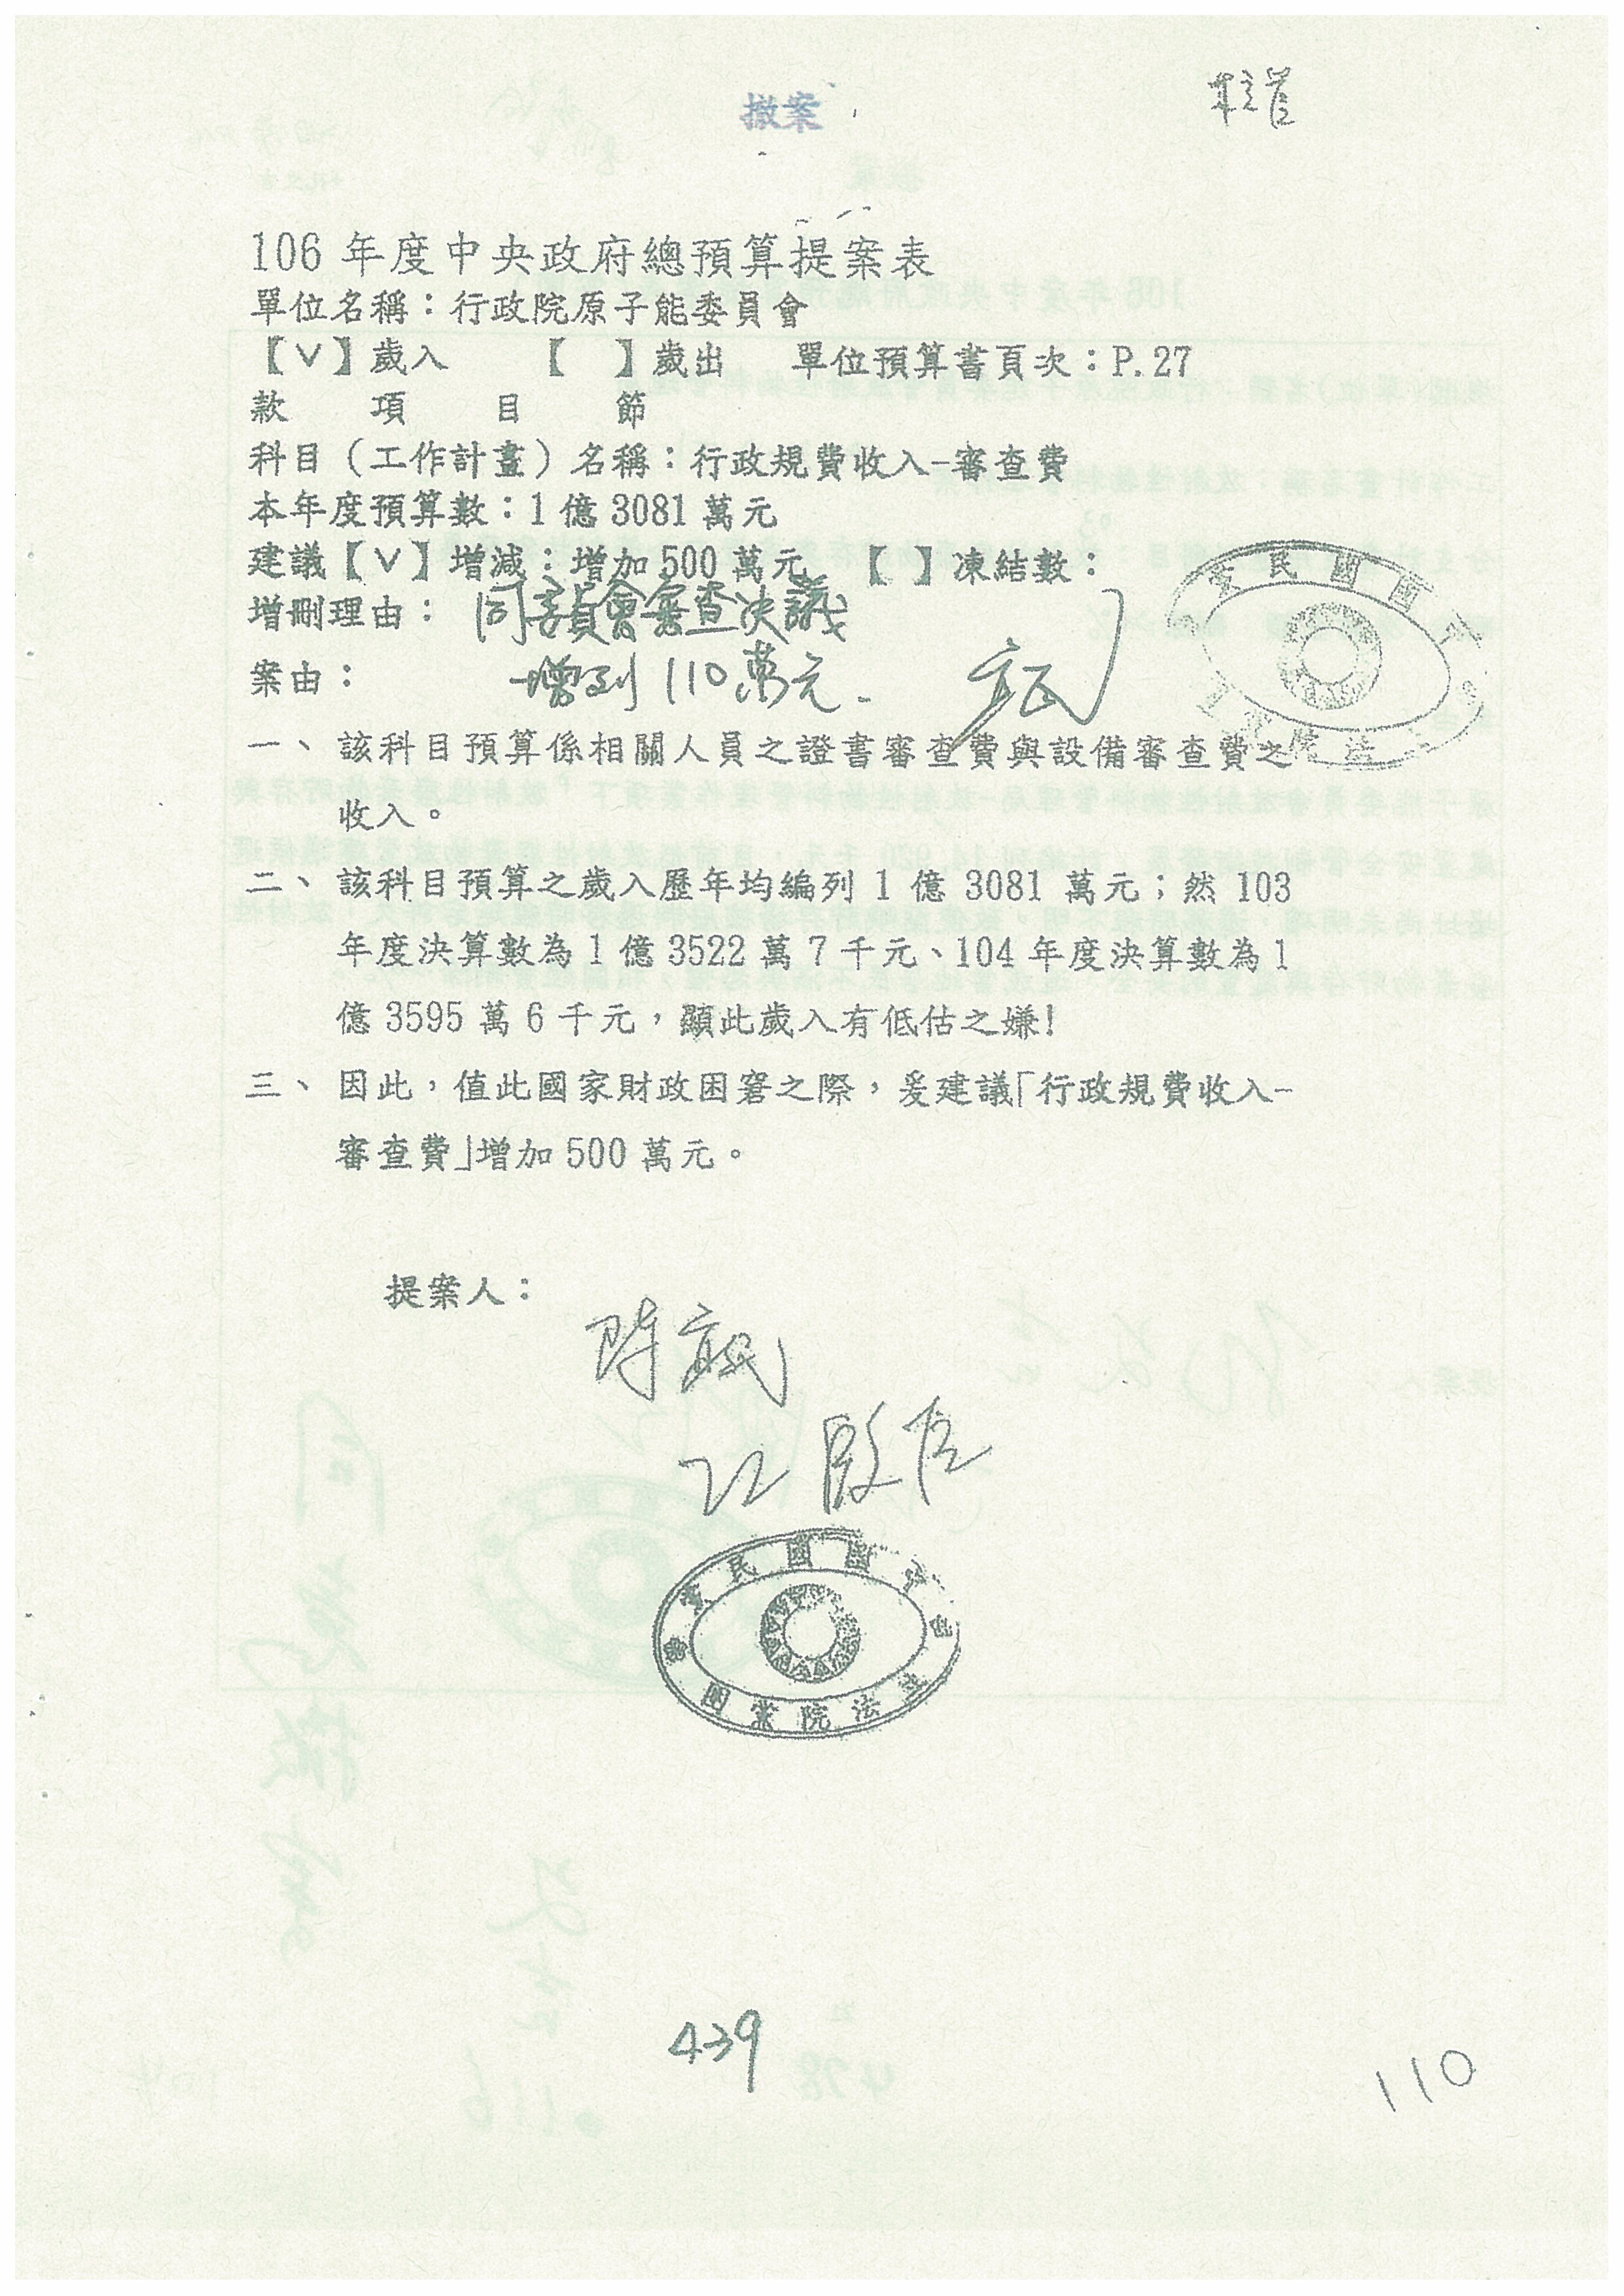 撤案
106 年度中央政府總預算提案表
單位名稱：行政院原子能委員會
【V】歲入　【　】歲出　單位預算書頁次：P.27
款　項　目　節
科目（工作計畫）名稱：行政規費收入-審查費
本年度預算數：1 億 3081 萬元
建議【V】增減：增加 500 萬元　【 】凍結數：
增刪理由：同委員會審查決議
案由：增列 110 萬元
一、該科目預算係相關人員之證書審查費與設備審查費之
收入。
二、該科目預算之歲入歷年均編列 1 億 3081 萬元；然 103
年度決算數為 1 億 3522 萬 7 千元、104 年度決算數為 1
億 3595 萬 6 千元，顯此歲入有低估之嫌!
三、因此，值此國家財政困窘之際，爰建議「行政規費收入-
審查費」增加 500 萬元。
提案人：
江啟臣
中國國民黨
立法院黨團
439
110